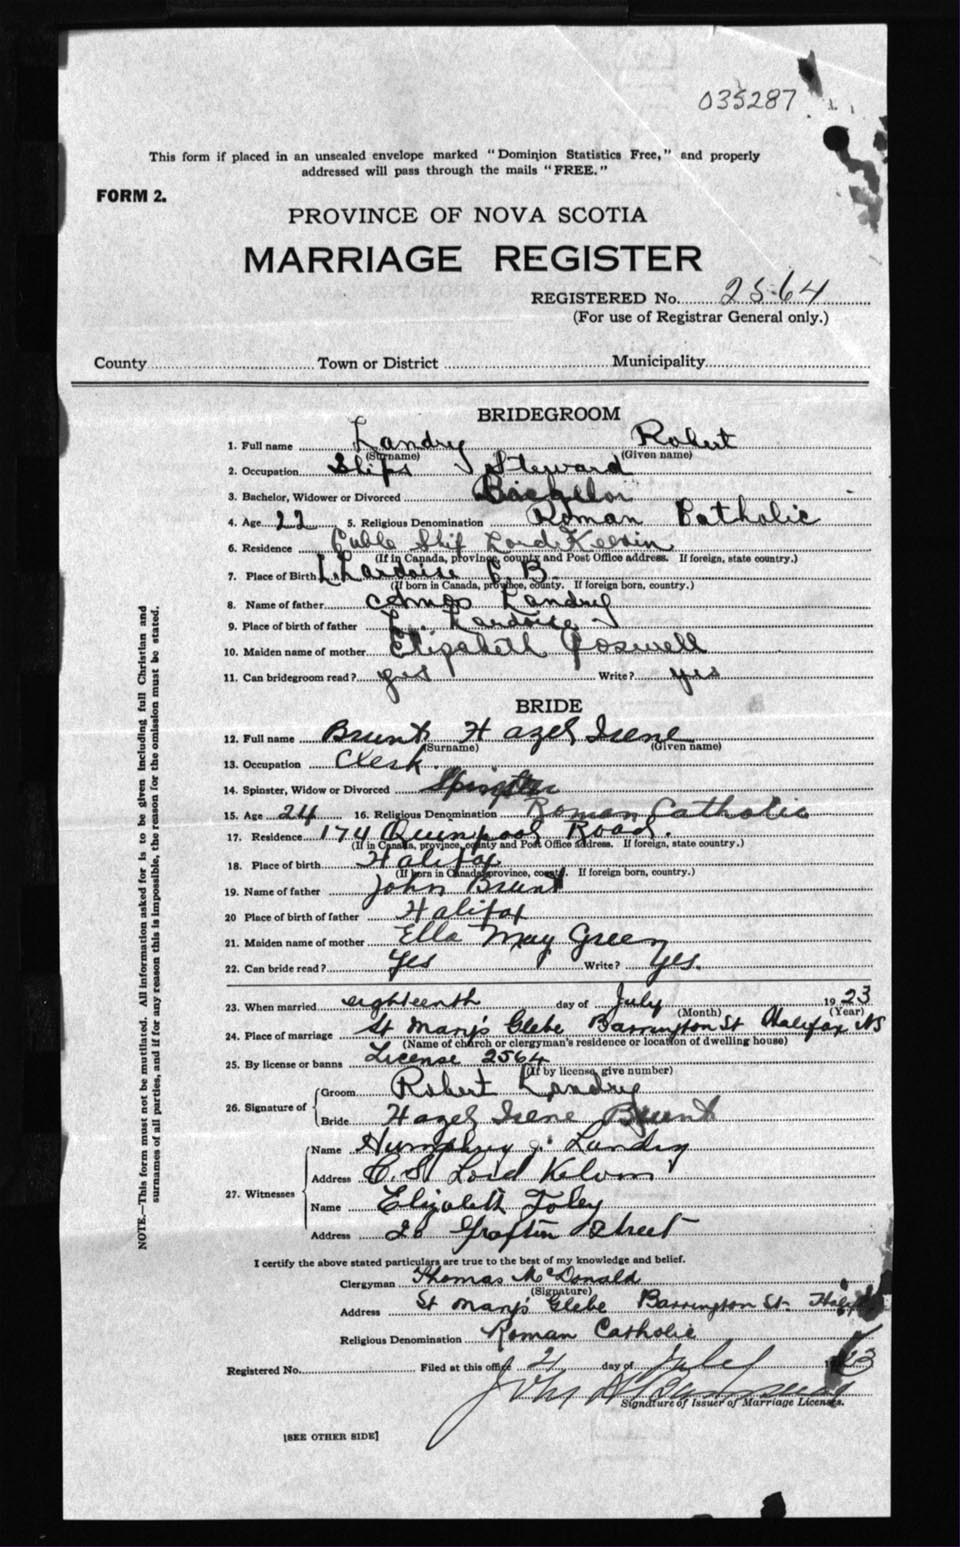 035287
This form if placed in an unsealed envelope marked "Dominion Statistics Free," and properly
addressed will pass through the mails "FREE."
FORM 2.
PROVINCE OF NOVA SCOTIA
MARRIAGE REGISTER
REGISTERED No. 2564
(For use of Registrar General only.)
County Town or District Municipality
BRIDEGROOM
1. Full name Landry Robert
(Surname) (Given name)
2. Occupation Ships Steward
3. Bachelor, Widower or Divorced Bachelor
4. Age 22 5. Religious Denomination Roman Catholic
6. Residence Cable Ship Lord Kelvin
(If in Canada, province, county and Post Office address. If foreign, state country.)
7. Place of Birth L'Ardoise C.B.
(If born in Canada, province, county. If foreign born, country.)
8. Name of father Amos Landry
9. Place of birth of father L'Ardoise
10. Maiden name of mother Elizabeth
11. Can bridegroom read? yes Write? yes
BRIDE
12. Full name Brunt Hazel Irene
(Surname) (Given name)
13. Occupation Clerk.
14. Spinster, Widow or Divorced Spinster
15. Age 24 16. Religious Denomination Roman Catholic
17. Residence 174 Quinpool Road.
(If in Canada, province, county and Post Office address. If foreign, state country.)
18. Place of birth Halifax
(If born in Canada, province, county. If foreign born, country.)
19. Name of father John Brunt
20 Place of birth of father Halifax
21. Maiden name of mother Ella May Green
22. Can bride read? Yes Write? Yes.
23. When married eighteenth day of July 1923
(Month) (Year)
24. Place of marriage St Mary's Glebe Barrington St Halifax NS
(Name of church or clergyman's residence or location of dwelling house)
25. By license or banns License 2564
(If by license, give number)
26. Signature of Groom Robert Landry
Bride Hazel Irene Brunt
27. Witnesses Name Humphrey J. Landry
Address C.S. Lord Kelvin
Name Elizabeth Foley
Address 26 Grafton Street
I certify the above stated particulars are true to the best of my knowledge and belief.
Clergyman Thomas McDonald
(Signature)
Address St Mary's Glebe Barrington St. Halifax
Religious Denomination Roman Catholic
Registered No. Filed at this office 21 day of July 1923
John
Signature of Issuer of Marriage Licenses.
[SEE OTHER SIDE]
NOTE.—This form must not be mutilated. All information asked for is to be given including full Christian and
surnames of all parties, and if for any reason this is impossible, the reason for the omission must be stated.